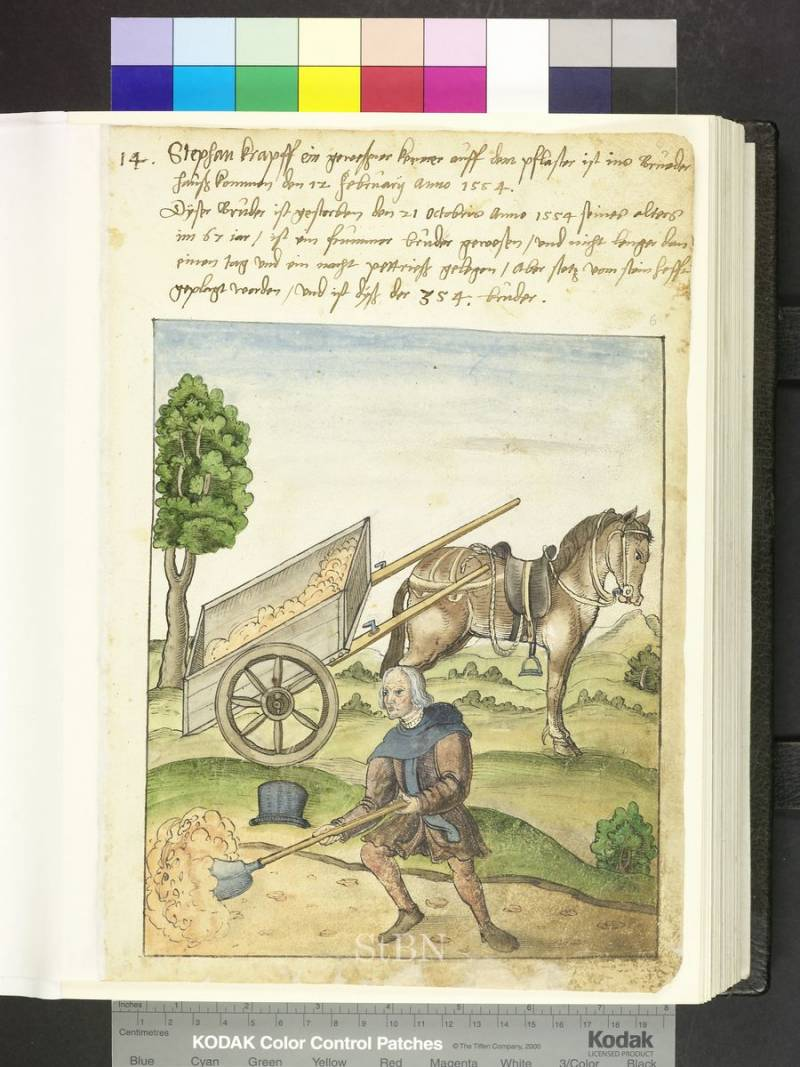 14. Stephan Krapff ein gewesener Kerner auff dem pflaster ist ins Brüeder
hauß kommen den 12 Februarÿ Anno 1554.
Dÿser Brüder ist gestorben den 21 Octobris Anno 1554 seines alters
im 67 iar / ist ein frummer brüder gewesen / und nicht lenger dan
einen tag und ein nacht pettrieß gelegen / Aber stetz vom stein hefftig
geplagt worden / Und ist dÿß der 354. brüder.
6
StBN
Inches 1 2 3 4 5 6 7 8
Centimetres 1 2 3 4 5 6 7 8 9 10 11 12 13 14 15 16 17 18 19
KODAK Color Control Patches © The Tiffen Company, 2000 Kodak
LICENSED PRODUCT
Blue Cyan Green Yellow Red Magenta White 3/Color Black